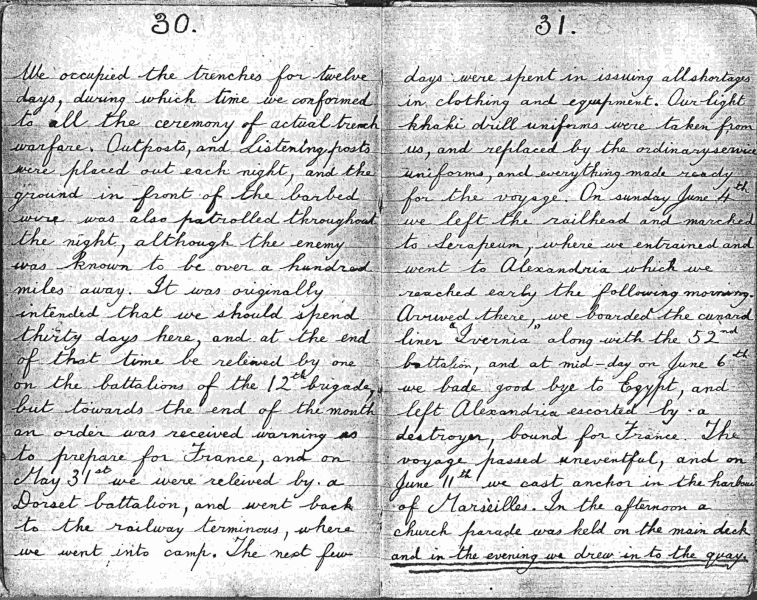 30.
We occupied the trenches for twelve
days, during which time we conformed
to all the ceremony of actual trench
warfare. Outposts, and Listening posts
were placed out each night, and the
ground in front of the barbed
wire was also patrolled throughout
the night, although the enemy
was known to be over a hundred
miles away. It was originally
intended that we should spend
thirty days here, and at the end
of that time be releived by one
on the battalions of the 12th brigade,
but towards the end of the month
an order was received warning us
to prepare for France, and on
May 31st we were releived by a
Dorset battalion, and went back
to the railway terminous, where
we went into camp. The next few
31.
days were spent in issuing all shortages
in clothing and equipment. Our light
khaki drill uniforms were taken from
us, and replaced by the ordinary service
uniforms, and everything made ready
for the voyage. On sunday June 4th
we left the railhead and marched
to Serapeum, where we entrained and
went to Alexandria which we
reached early the following morning.
Arrived there, we boarded the cunard
liner "Ivernia" along with the 52nd
battalion, and at mid-day on June 6th
we bade good bye to Egypt, and
left Alexandria escorted by a
destroyer, bound for France. The
voyage passed uneventful, and on
June 11th we cast anchor in the harbour
of Marseilles. In the afternoon a
church parade was held on the main deck
and in the evening we drew in to the quay.